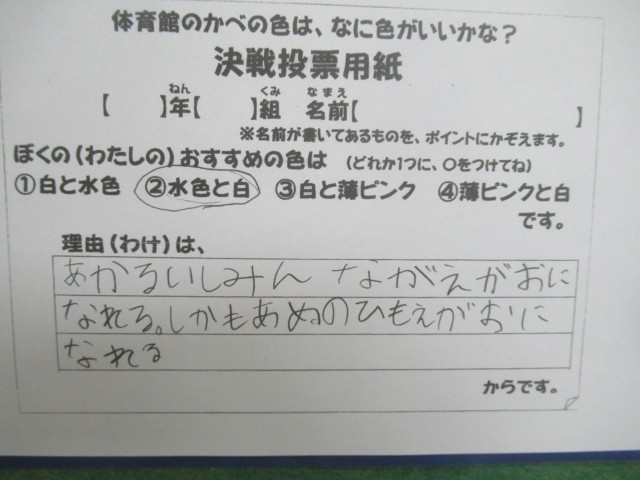 体育館のかべの色は、なに色がいいかな？
決戦投票用紙
【　　】年【　　】組　名前【　　　　　　】
ねん　くみ　なまえ
※名前が書いてあるものを、ポイントにかぞえます。
ぼくの（わたしの）おすすめの色は　（どれか1つに、○をつけてね）
①白と水色　②水色と白　③白と薄ピンク　④薄ピンクと白
です。
理由（わけ）は、
あかるいしみんながえがおに
なれる。しかもあめのひもえがおに
なれる
からです。